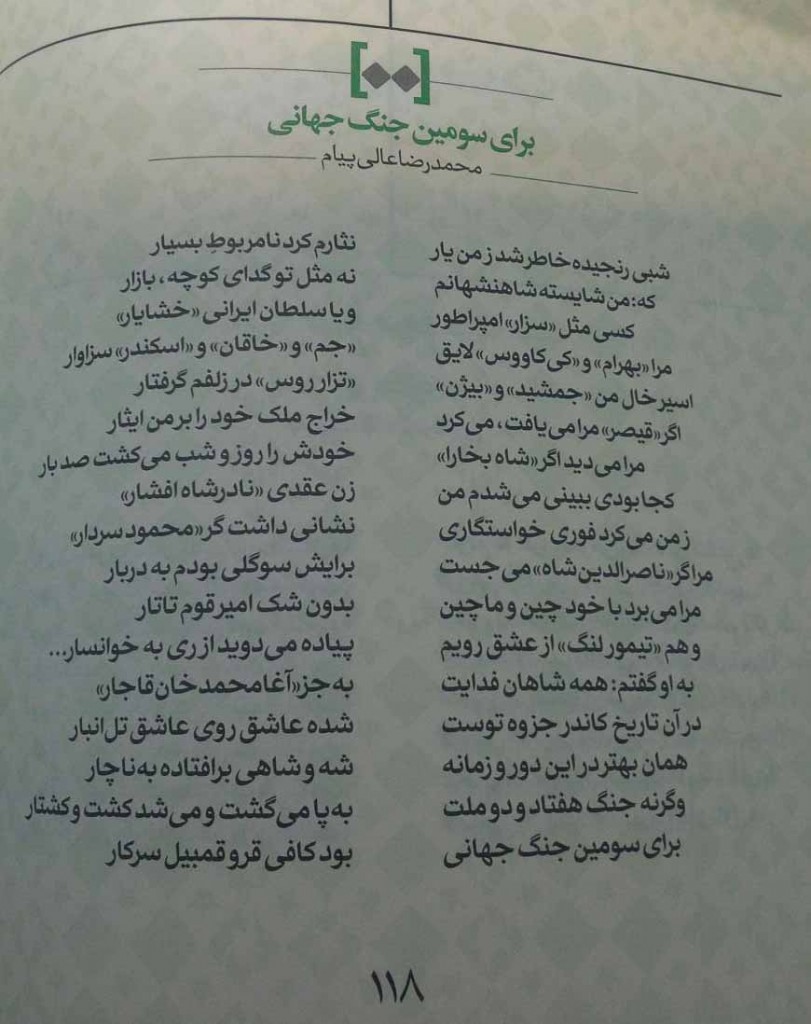 برای سومین جنگ جهانی
محمدرضا عالی پیام
شبی رنجیده خاطر شد ز من یار
نثارم کرد نامربوطِ بسیار
که: من شایسته شاهنشهانم
نه مثل تو گدای کوچه، بازار
کسی مثل «سزار» امپراطور
و یا سلطان ایرانی «خشایار»
مرا «بهرام» و «کی کاووس» لایق
«جم» و «خاقان» و «اسکندر» سزاوار
اسیر خال من «جمشید» و «بیژن»
«تزار روس» در زلفم گرفتار
اگر «قیصر» مرا می یافت، می کرد
خراج ملک خود را بر من ایثار
مرا می دید اگر «شاه بخارا»
خودش را روز و شب می کشت صد بار
کجا بودی ببینی می شدم من
زن عقدی «نادرشاه افشار»
ز من می کرد فوری خواستگاری
نشانی داشت گر «محمود سردار»
مرا گر «ناصرالدین شاه» می جست
برایش سوگلی بودم به دربار
مرا می برد با خود چین و ماچین
بدون شک امیر قوم تاتار
و هم «تیمور لنگ» از عشق رویم
پیاده می دوید از ری به خوانسار...
به او گفتم: همه شاهان فدایت
به جز «آغا محمد خان قاجار»
در آن تاریخ کاندر جزوه توست
شده عاشق روی عاشق تل انبار
همان بهتر در این دور و زمانه
شه و شاهی برافتاده به ناچار
وگرنه جنگ هفتاد و دو ملت
به پا می گشت و می شد کشت و کشتار
برای سومین جنگ جهانی
بود کافی قر و قمبیل سرکار
۱۱۸